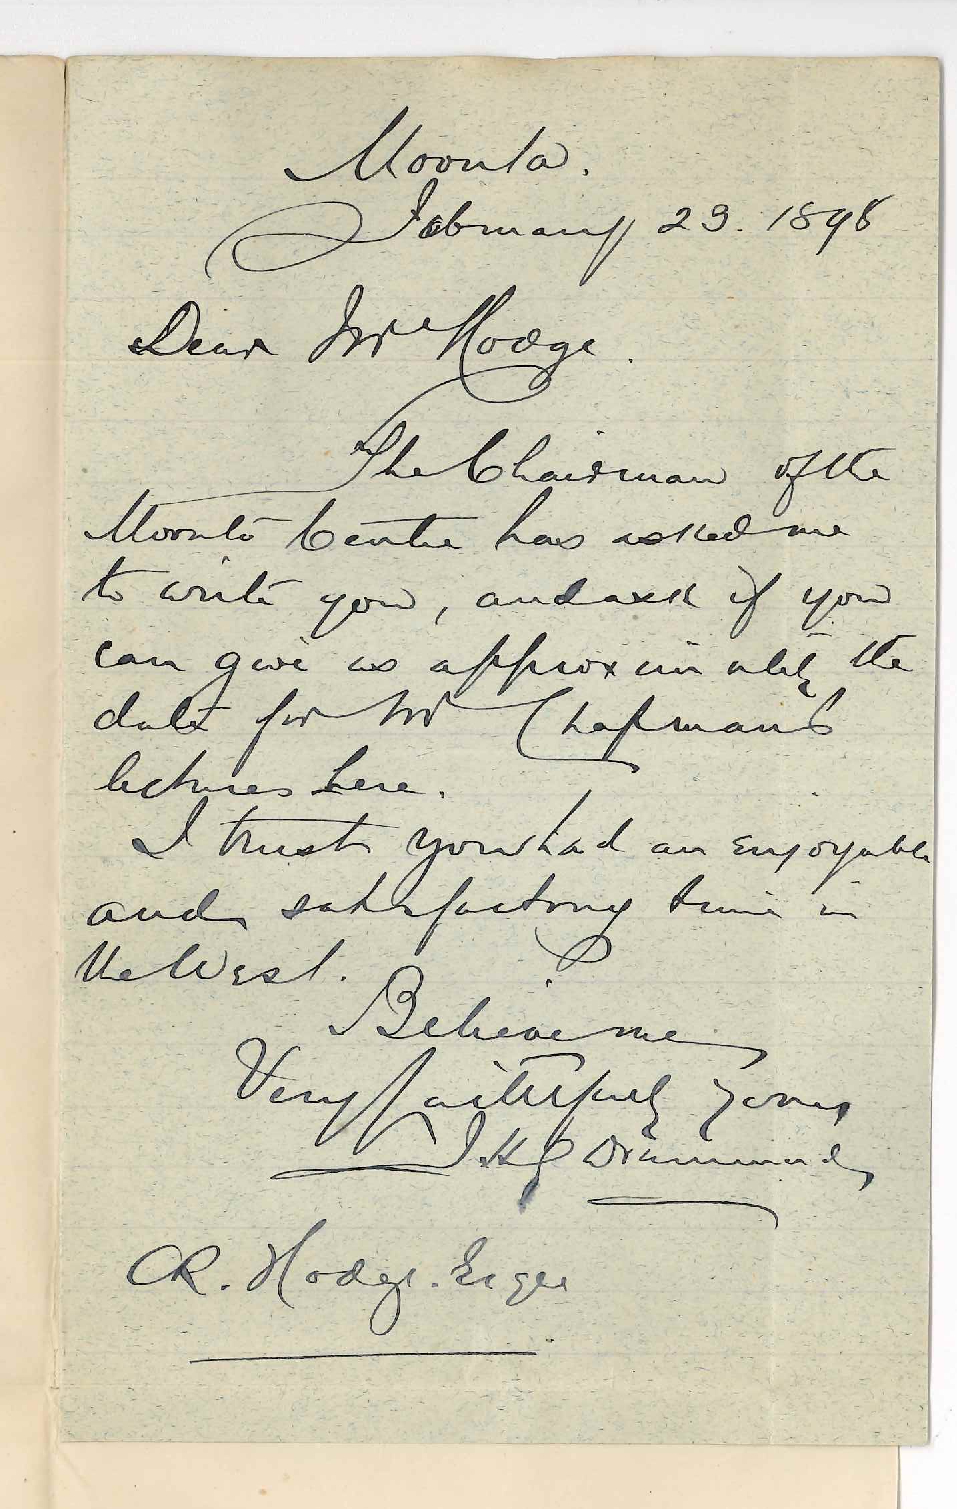 Moonta.
February 23. 1898
Dear Mr Hodge.
The Chairman of the
Moonta Centre has asked me
to write you, and ask if you
can give us approximately the
date for Mr Chapman's
lectures here.
I trust you had an enjoyable
and satisfactory time in
the West.
Believe me
Very faithfully Yours
Drummond
CR. Hodge. Esqre